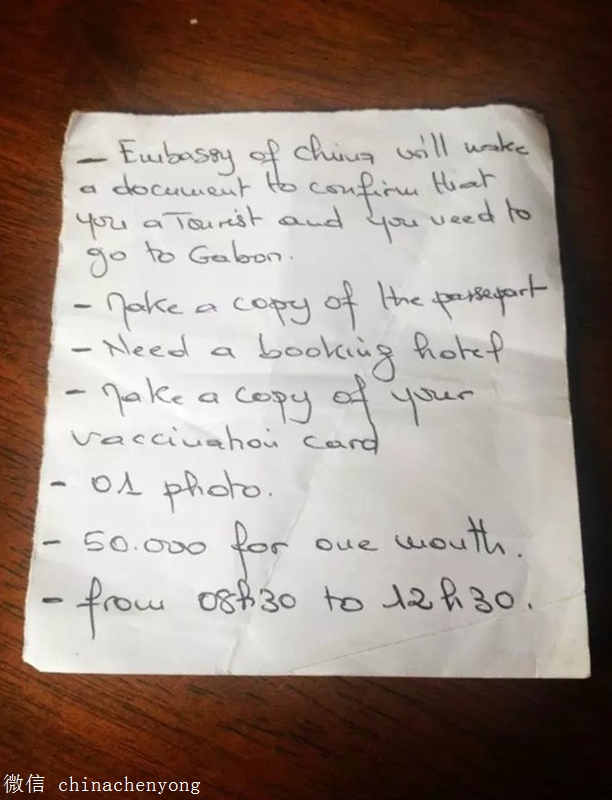 - Embassy of China will make
a document to confirm that
you a Tourist and you need to
go to Gabon.
- Make a copy of the passeport
- Need a booking hotel
- Make a copy of your
vaccination card
- 01 photo.
- 50.000 for one mouth.
- from 08h30 to 12h30.
微信 chinachenyong